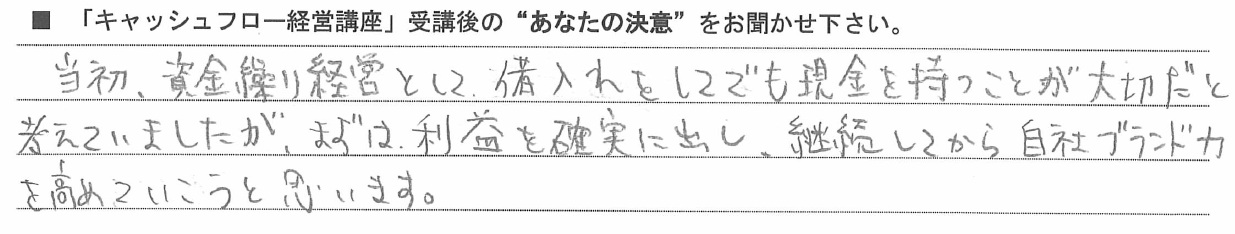 ■ 「キャッシュフロー経営講座」受講後の“あなたの決意”をお聞かせ下さい。
当初、資金繰り経営として、借入れをしてでも現金を持つことが大切だと
考えていましたが、まずは、利益を確実に出し、継続してから自社ブランド力
を高めていこうと思います。